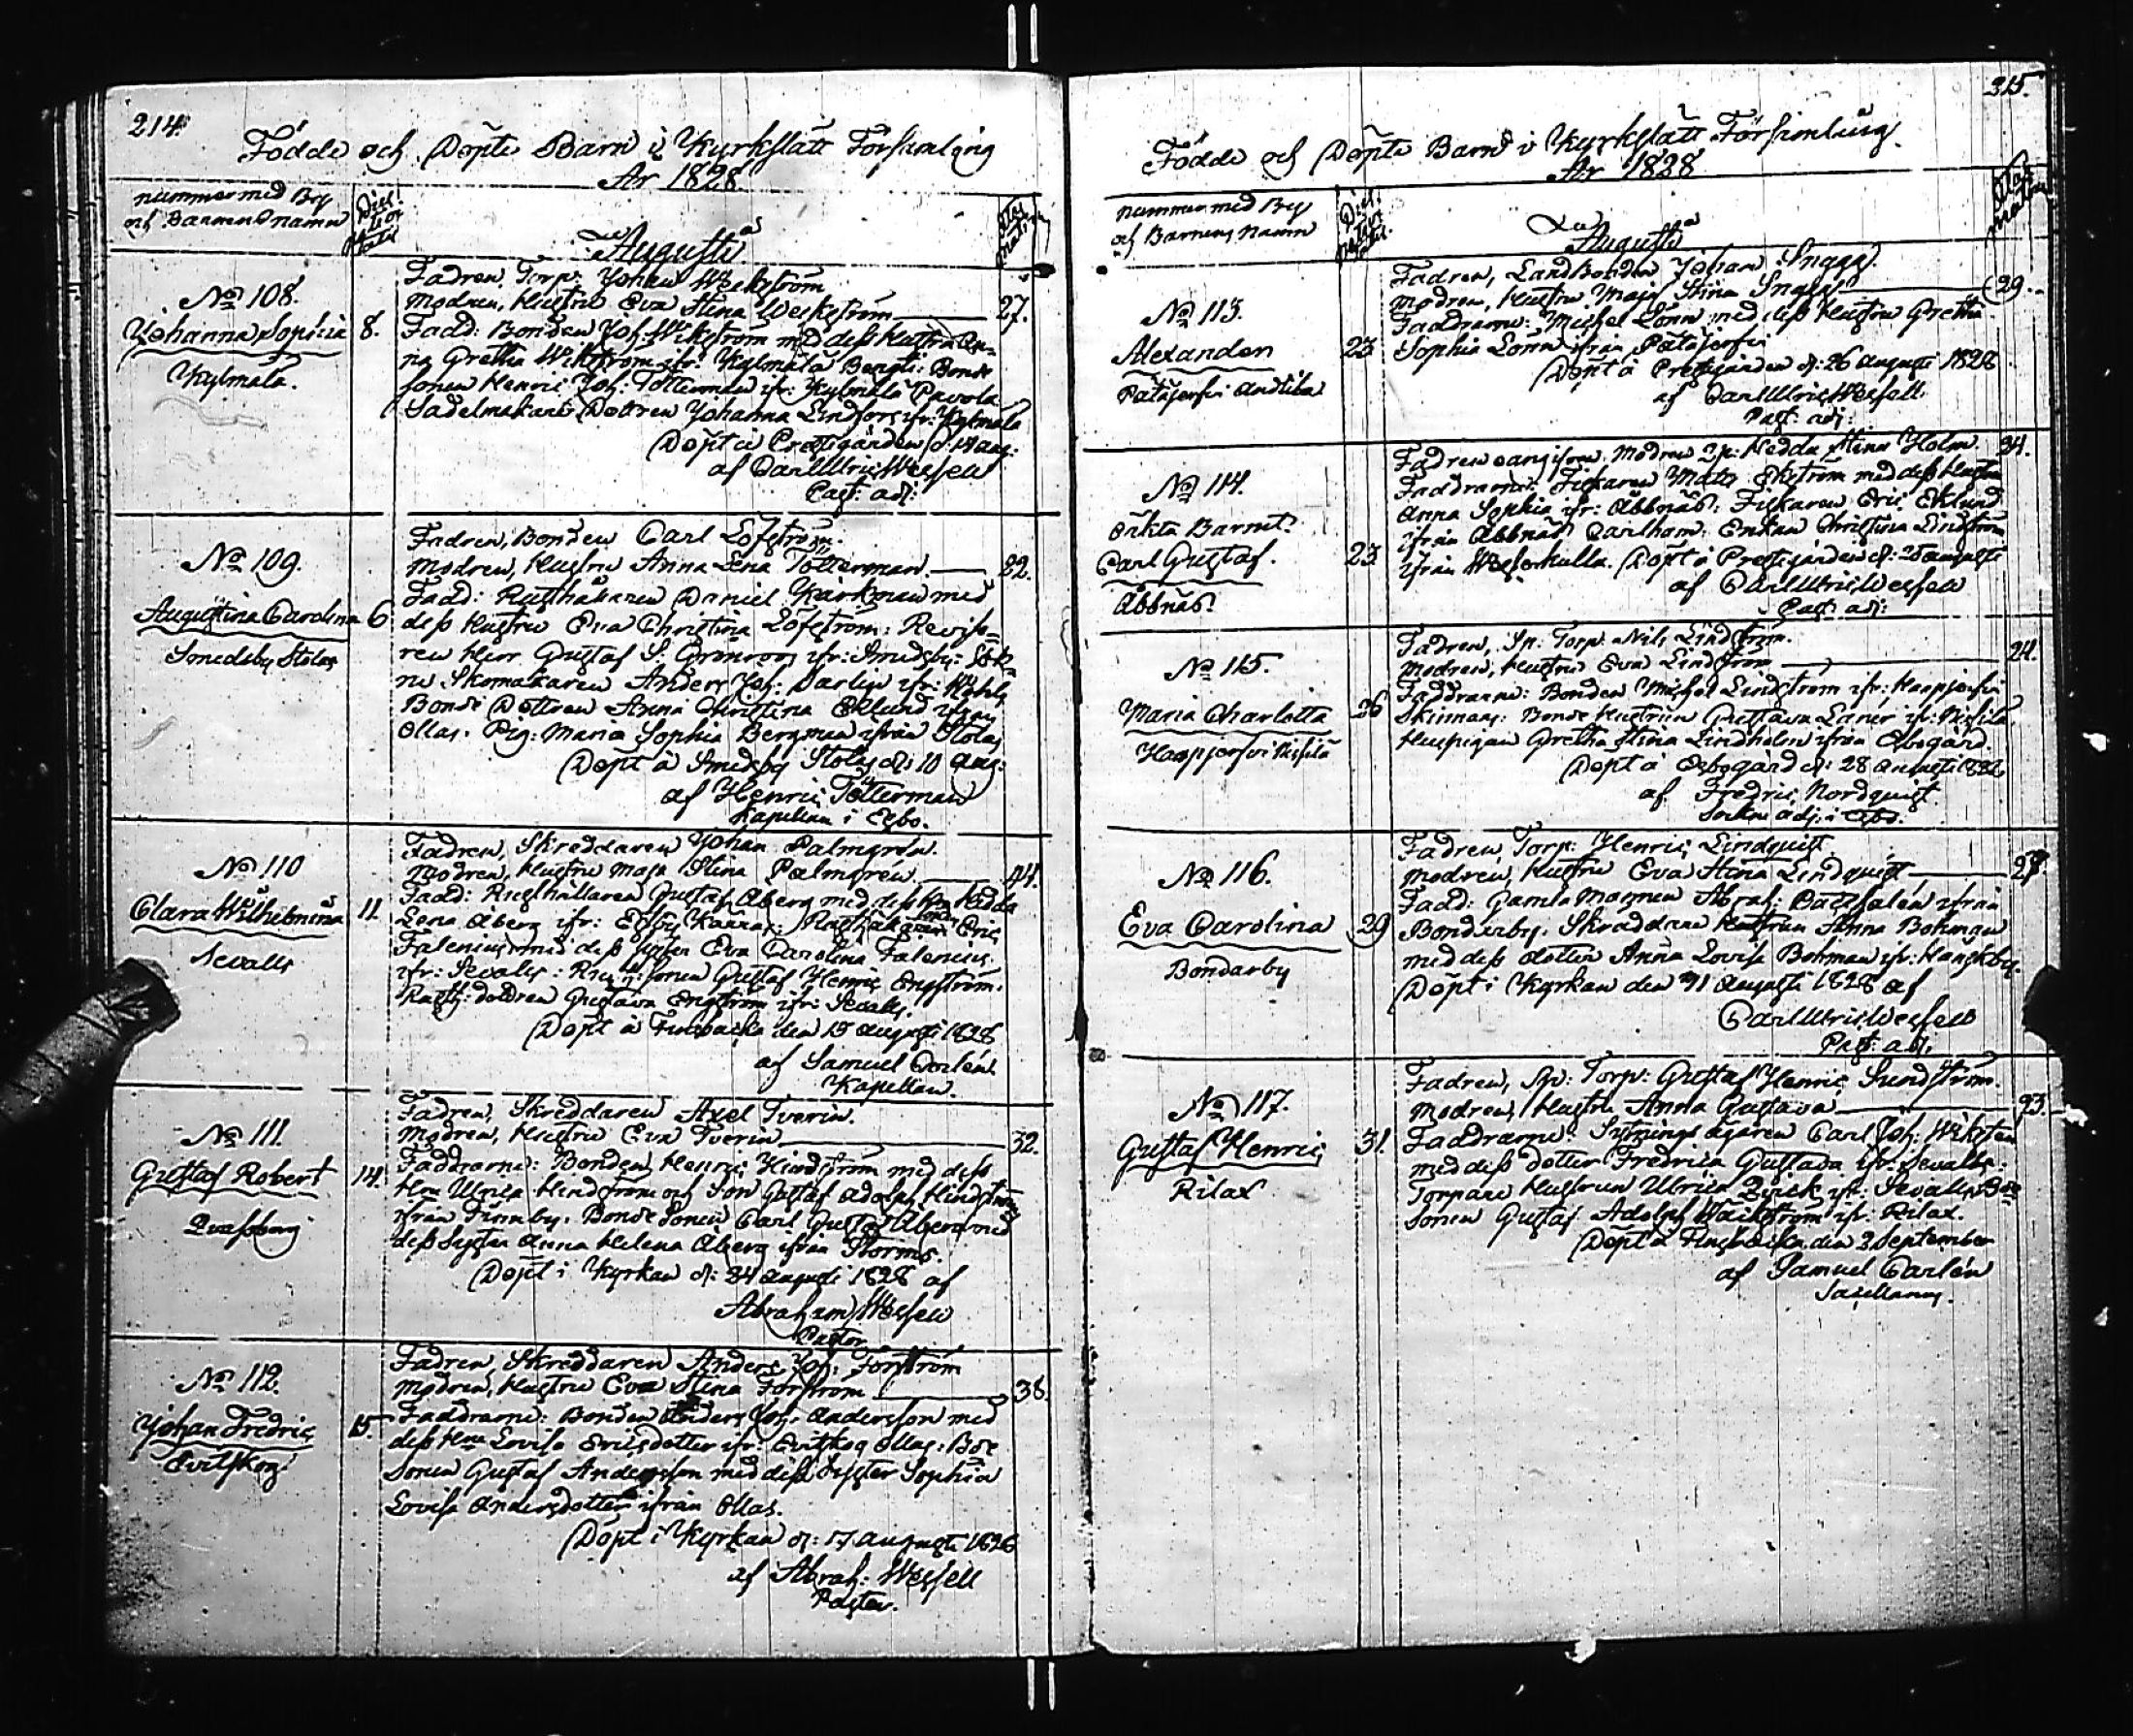 214.
Födde och Döpte Barn i Kyrkslätt Församling
År 1828.
nummer med By
och Barnens namn
Augusti
No 108.
Johanna Sophia 8.
Kylmälä.
Fadren, Torp: Johan Weckström
Modren, Hustru Eva Stina Weckström 27.
Fadd: Bonden Joh: Wikström med dess Hustru An-
na Gretha Wikström ifr: Kylmälä Bengts: Bonde
Sonen Henric Joh: Tötterman ifr: Kylmälä Pavola
Sadelmakare Dottren Johanna Lindfors ifr: Kylmälä
Döpt å Prestgården d: 14 aug:
af Carl Ulric Wessell
Past: adj:
No 109.
Augustina Carolina 6
Smedsby Stolas
Fadren, Bonden Carl Löfström.
Modren, Hustru Anna Lena Tötterman. 22.
Fadd: Rusthållaren Daniel Karkman med
dess Hustru Eva Christina Löfström: Reviso-
ren Herr Gustaf S: Grönroos ifr: Smedsby: Sock-
ne Skomakaren Anders Joh: Darlin ifr:
Bonde Dottren Anna Christina Eklund ifrån
Ollas. Pig: Maria Sophia Bergman ifrån Stolas
Döpt å Smedsby Stolas d: 10 Aug:
af Henric Tötterman
Kapellan i Esbo.
No 110
Clara Wilhelmina 11.
Sevalls
Fadren, Skreddaren Johan Palmgren.
Modren, Hustru Maja Stina Palmgren. 44.
Fadd: Rusthållaren Gustaf Åberg med dess Hu Hedda
Lena Åberg ifr: Esby Kääras: Rusthållaren Eric
Falenius med dess Syster Eva Carolina Falenius.
ifr: Sevalls: Rusth: sonen Gustaf Henric Engström.
Rusth: dottren Gustava Engström ifr: Sevalls.
Döpt å Finsbacka den 15 augusti 1828
af Samuel Carlén.
Kapellan.
No 111.
Gustaf Robert 14.
Fadren, Skreddaren Axel Tverin.
Modren, Hustru Eva Tverin 32.
Faddrarne: Bonden Henric Hindström med dess
Hu Ulrica Hindström och Son Gustaf Adolph Hindström
ifrån Finnby. Bonde Sonen Carl Gustaf Åberg med
dess Syster Anna Helena Åberg ifrån Storms.
Döpt i Kyrkan d: 24 augusti 1828 af
Abraham Wessell
Pastor
No 112.
Johan Fredric 15.
Evitskog
Fadren, Skreddaren Anders Joh: Forström
Modren, Hustru Eva Stina Forström 38.
Faddrarne: Bonden Anders Joh: Andersson med
dess Hu Lovisa Ericsdotter ifr: Evitskog Ollas: Bde
Sonen Gustaf Andersson med dess Syster Sophia
Lovisa Andersdotter ifrån Ollas.
Döpt i Kyrkan d: 17 augusti 1828
af Abrah: Wessell
Pastor.
215.
Födde och Döpte Barn i Kyrkslätt Församling.
År 1828
nummer med By
och Barnens Namn
Augusti
No 113.
Alexander 23
Pätäjerfvi Anttila
Fadren, Landbonden Johan Snagg.
Modren, Hustru Maja Stina Snagg 29.
Faddrarne: Michel Lönn med dess Hustru Gretha
Sophia Lönn ifrån Pätäjerfvi
Döpt å Prestgården d: 26 augusti 1828
af Carl Ulric Wessell.
Past: adj:
No 114.
oäkta Barnet:
Carl Gustaf. 23
Åbbnäs.
Fadren oangifven. Modren Hedda Stina Holm. 34.
Faddrarne: Fiskaren Matts Ekström med dess Hustru
Anna Sophia ifr: Åbbnäs: Fiskaren Eric Eklund
ifrån Åbbnäs Carlhamn: Enkan Christina Lindström
ifrån Westerkulla. Döpt å Prestgården d: 25 augusti
af Carl Ulric Wessell
Past: adj:
No 115.
Maria Charlotta 26
Haapjerfvi Nissilä
Fadren, Sp: Torp: Nils Lindström.
Modren, Hustru Eva Lindström 24.
Faddrarne: Bonden Michel Lindström ifr: Haapjerfvi
Skinnars: Bonde Hustrun Gustava Laner ifr: Nissilä
Huspigan Gretha Stina Lindholm ifrån Esbogård.
Döpt å Esbogård d: 28 augusti 1828
af Fredric Nordquist.
Sockne adj: i Esbo.
No 116.
Eva Carolina 29
Bondarby
Fadren, Torp: Henric Lindquist.
Modren, Hustru Eva Stina Lindquist, 27.
Fadd: Gamla Mannen Abrah: ifrån
Bondarby. Skreddare Hustrun Anna Bohman
med dess dotter Anna Lovisa Bohman ifr: Hangkby.
Döpt i Kyrkan den 31 augusti 1828 af
Carl Ulric Wessell
Past: adj:
No 117.
Gustaf Henric 31.
Rilax
Fadren, Sp: Torp: Gustaf Henric Sundström.
Modren, Hustru Anna Gustava 23.
Faddrarne: Sytnings ägaren Carl Joh: Wiksten
med dess dotter Fredrica Gustava ifr: Sevalls:
Torpare Hustrun Ulrica ifr: Sevalls Bde
Sonen Gustaf Adolph Wäckström ifr: Rilax.
Döpt å Finsbacka den 3 September
af Samuel Carlén
Sacellanus.